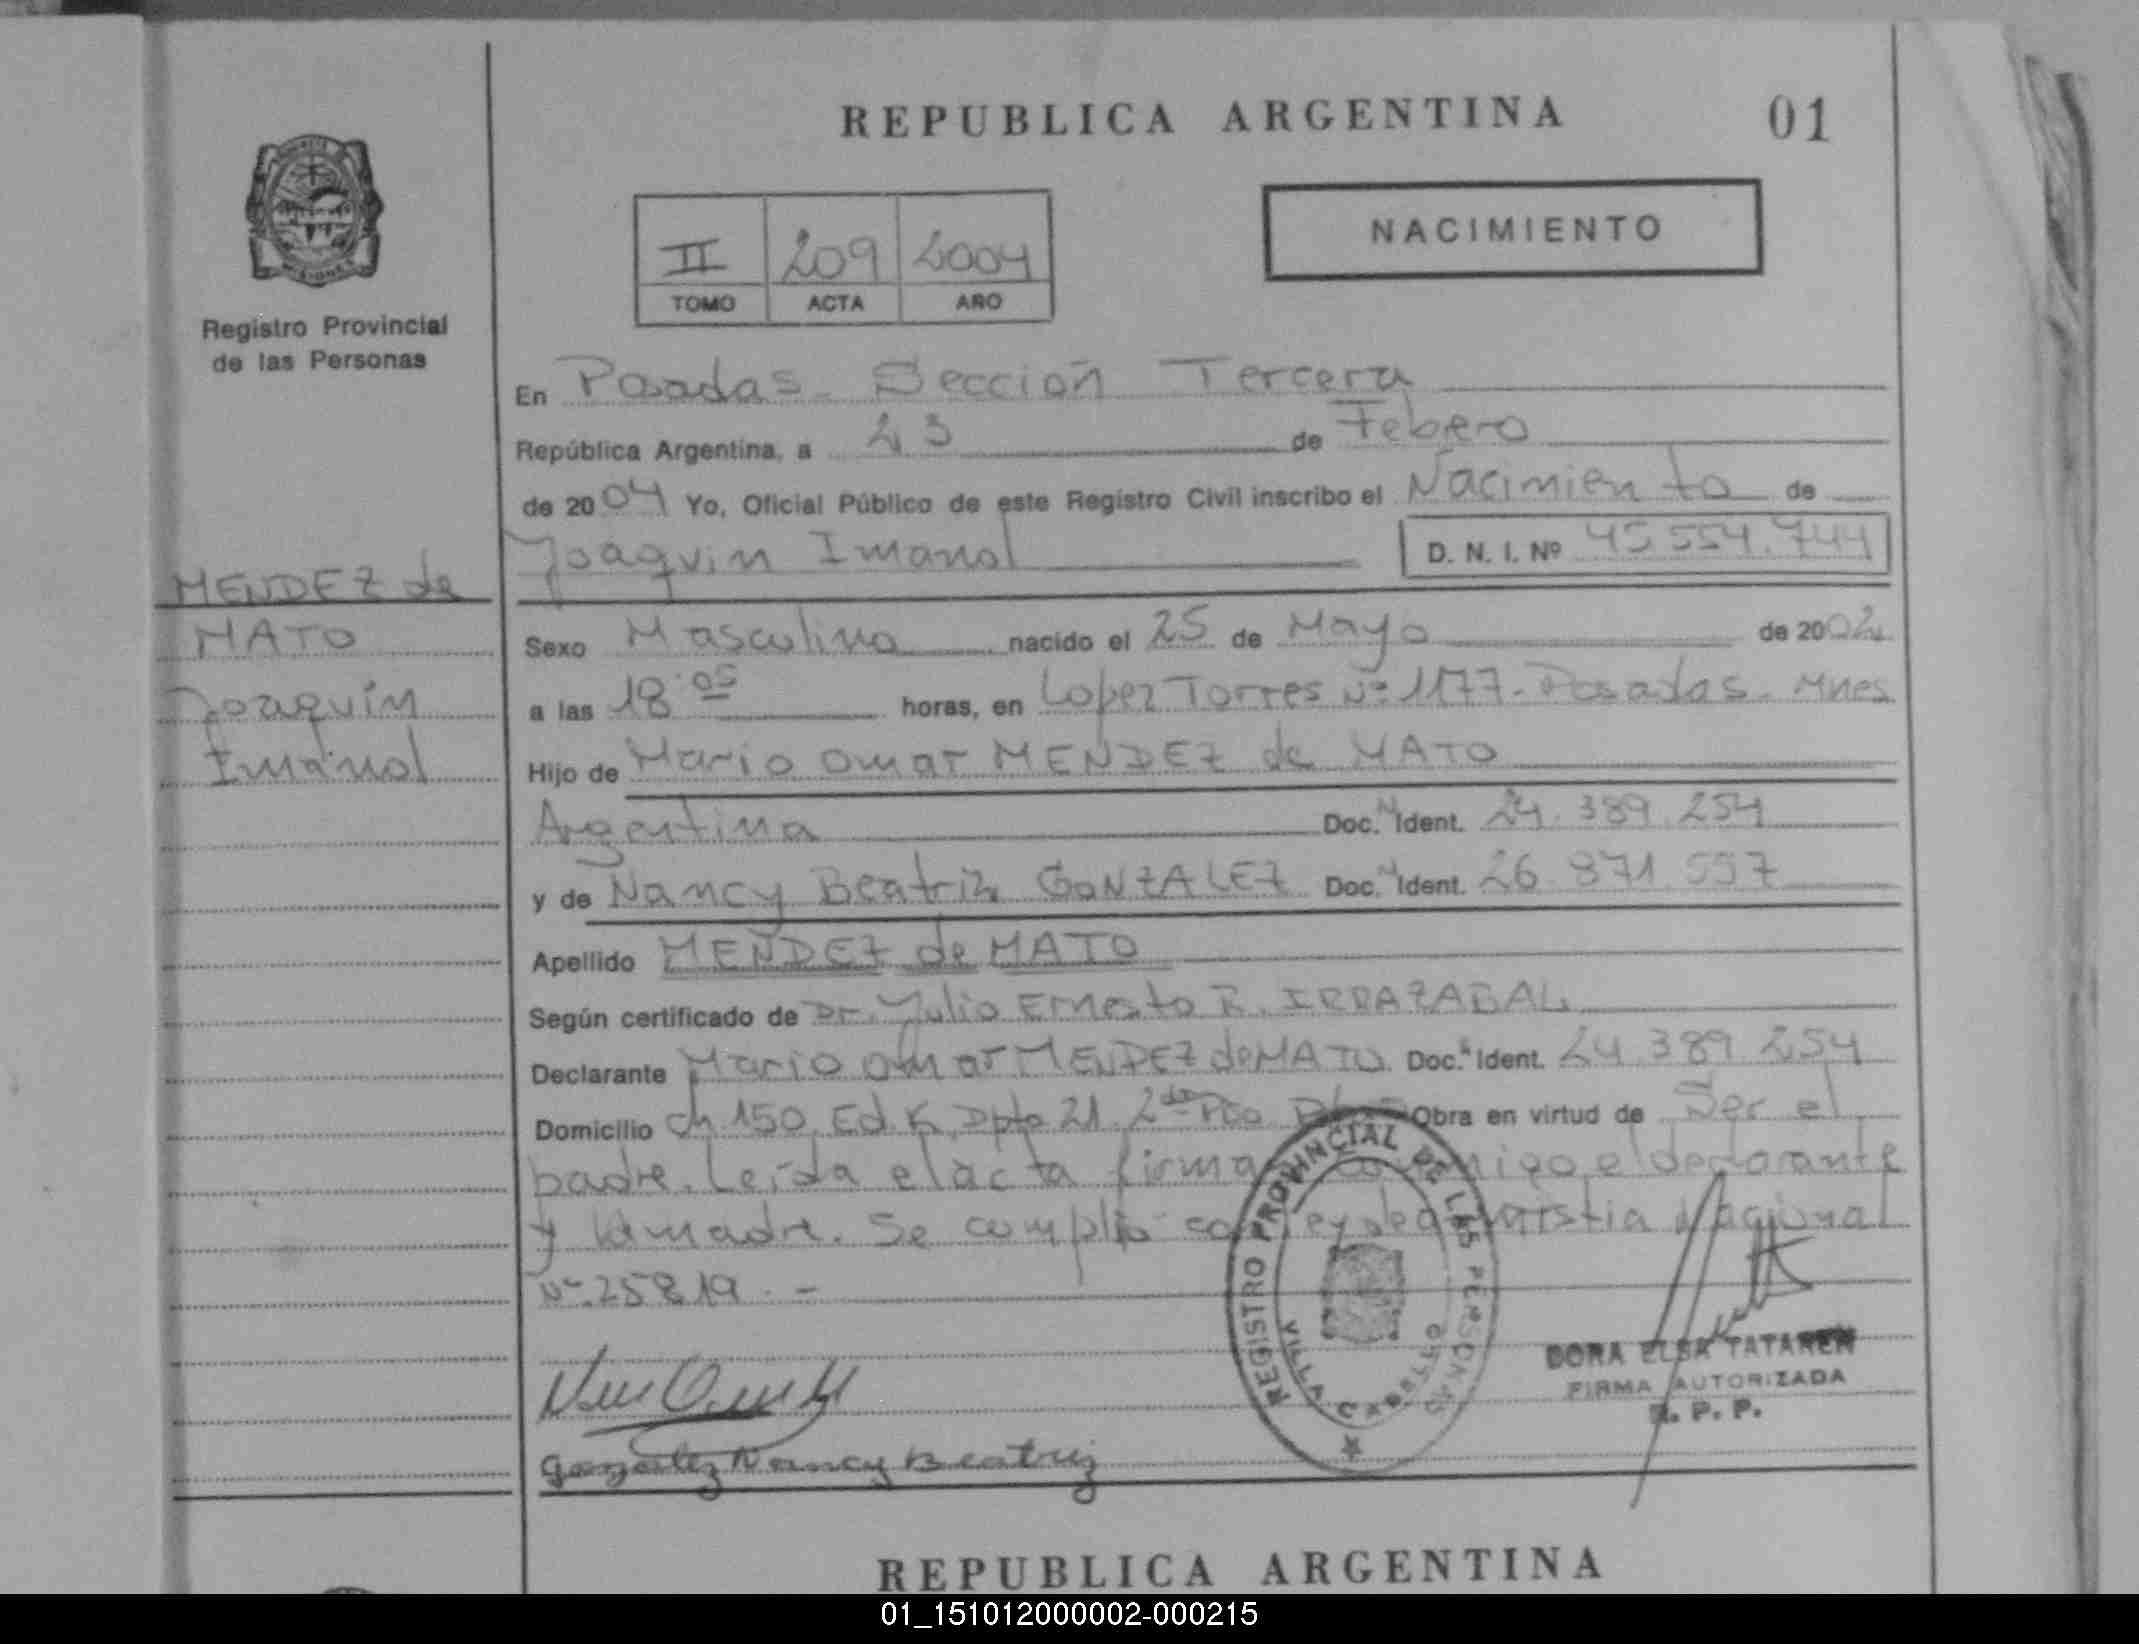 REPUBLICA ARGENTINA
01
NACIMIENTO
II 209 2004
TOMO ACTA AÑO
Registro Provincial
de las Personas
En Posadas - Sección Tercera
República Argentina, a 23 de Febero
de 2004 Yo, Oficial Público de este Registro Civil inscribo el Nacimiento de
Joaquin Imanol D. N. I. Nº 45 554.744
MENDEZ de
MATO
Joaquin
Imanol
Sexo Masculino nacido el 25 de Mayo de 2002
a las 18 05 horas, en Lopez Torres Nº 1177 - Posadas - Mnes
Hijo de Mario Omar MENDEZ de MATO
Argentina Doc. N Ident. 24.389.254
y de Nancy Beatriz GONZALEZ Doc. N Ident. 26 871 557
Apellido MENDEZ de MATO
Según certificado de Dr. Julio Ernesto R. IRRAZABAL
Declarante Mario Omar MENDEZ de MATO Doc. Ident. 24 389 254
Domicilio ch 150. Ed. K. Dpto 21. 2do Pso Obra en virtud de Ser el
padre. Leída el acta firma conmigo el declarante
y la madre. Se cumplió con ley de amnistia Nacional
Nº 25819. -
REGISTRO PROVINCIAL DE LAS PERSONAS
VILLA CABELLO
DORA ELSA TATAREN
FIRMA AUTORIZADA
R. P. P.
Gonzalez Nancy Beatriz
REPUBLICA ARGENTINA
01_151012000002-000215